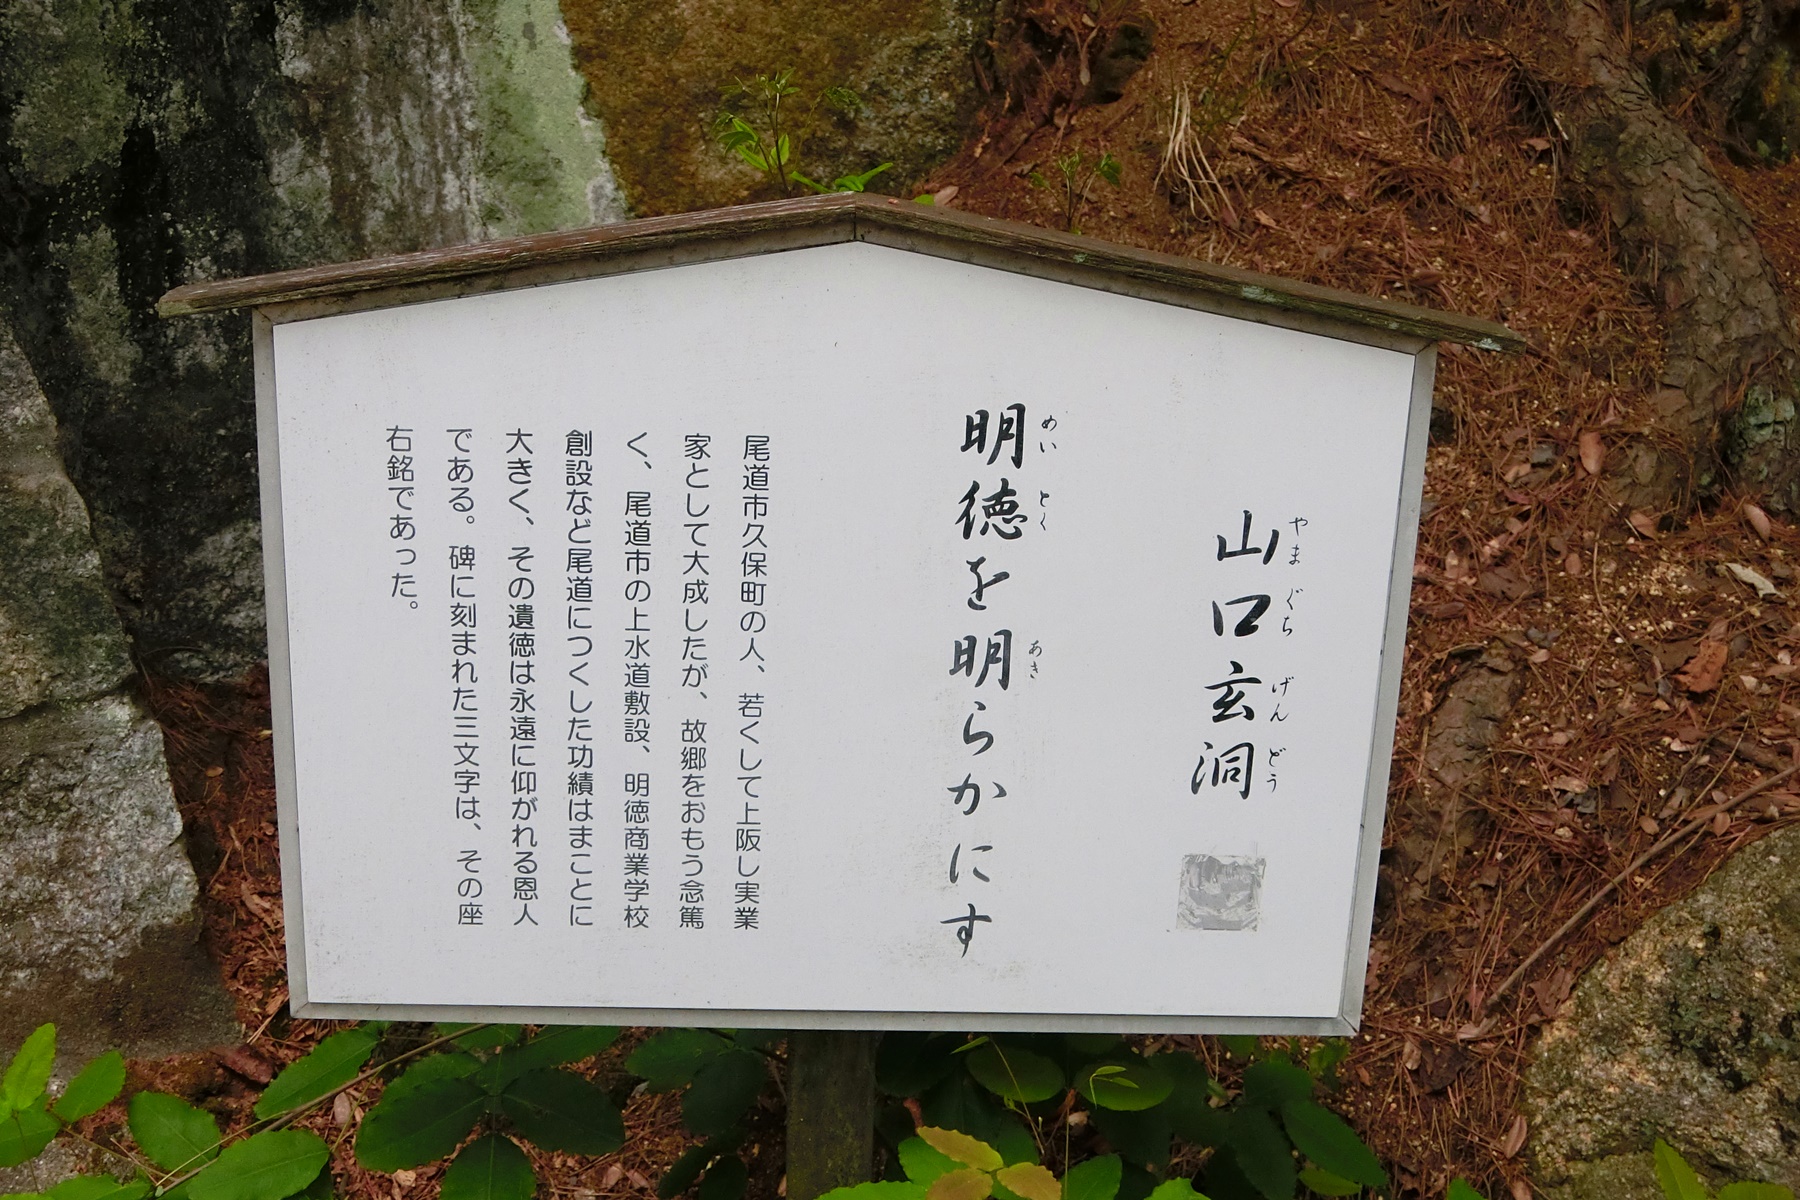 山口玄洞
やまぐちげんどう
明徳を明らかにす
めいとくあき
尾道市久保町の人、若くして上阪し実業
家として大成したが、故郷をおもう念篤
く、尾道市の上水道敷設、明徳商業学校
創設など尾道につくした功績はまことに
大きく、その遺徳は永遠に仰がれる恩人
である。碑に刻まれた三文字は、その座
右銘であった。